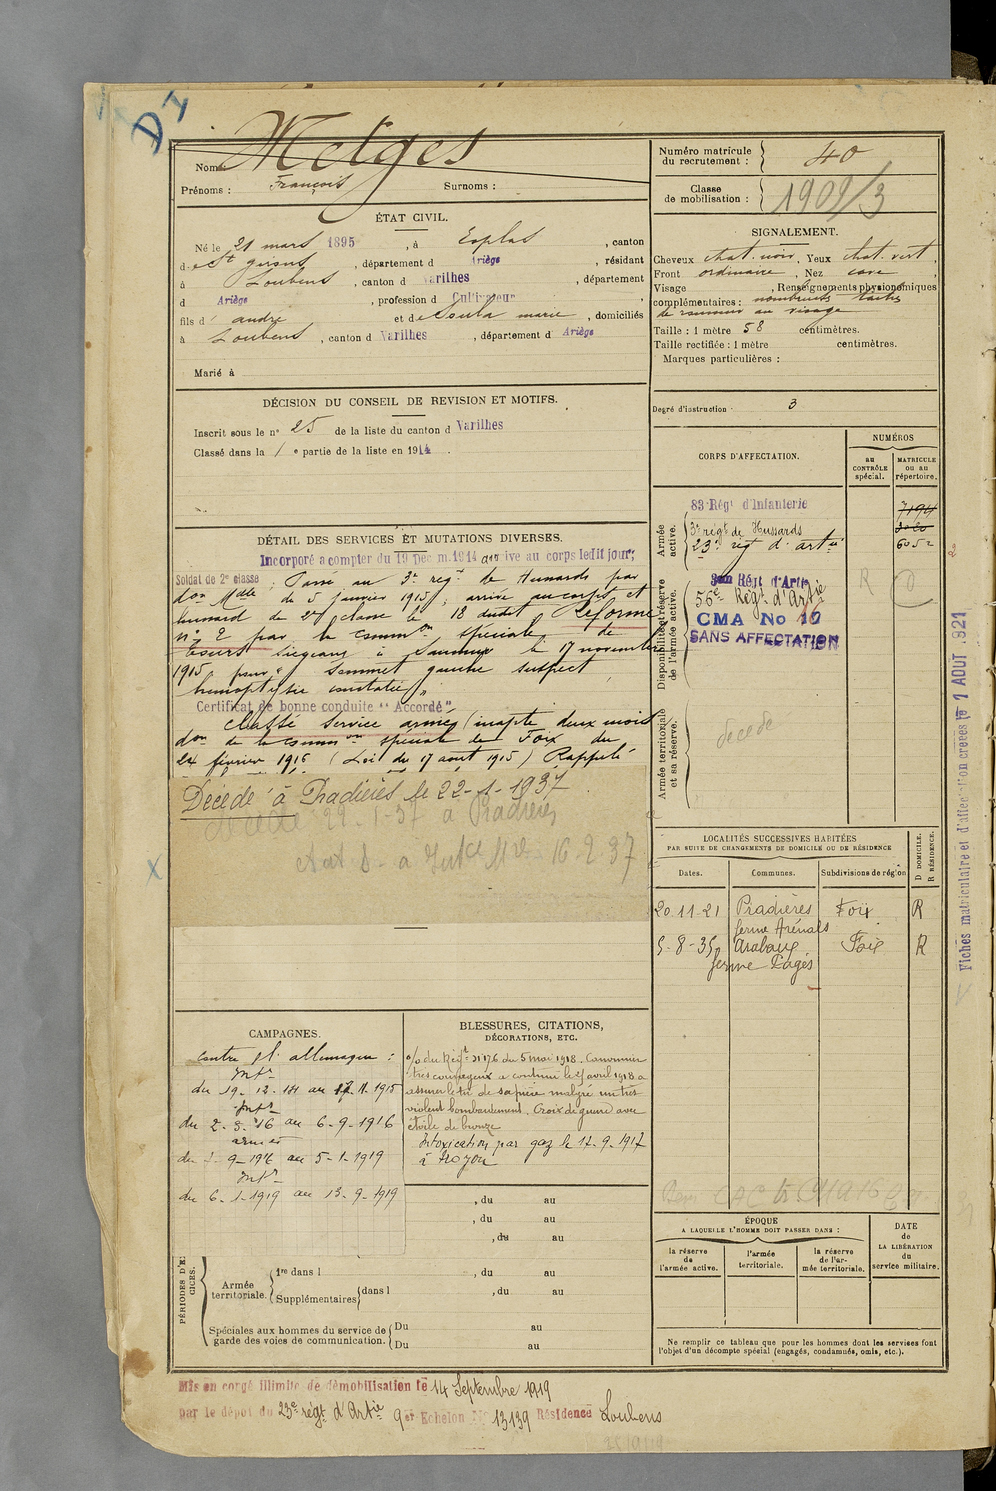 D I
Nom Metges
Prénoms : François Surnoms :
Numéro matricule du recrutement : 40
Classe de mobilisation : 1909/3
ÉTAT CIVIL.
Né le 21 mars 1895, à Esplas, canton
de St Girons, département d Ariège, résidant
à Loubens, canton d Varilhes, département
d Ariège, profession d Cultivateur,
fils d' andré et de Soula marie, domiciliés
à Loubens, canton d Varilhes, département d Ariège
Marié à
SIGNALEMENT.
Cheveux chat. noir, Yeux chat. vert,
Front ordinaire, Nez cave,
Visage , Renseignements physionomiques
complémentaires : nombreuses tâches
de rousseur au visage
Taille : 1 mètre 58 centimètres.
Taille rectifiée : 1 mètre centimètres.
Marques particulières :
Degré d'instruction : 3
DÉCISION DU CONSEIL DE REVISION ET MOTIFS.
Inscrit sous le n° 25 de la liste du canton d Varilhes
Classé dans la 1 e partie de la liste en 1914.
DÉTAIL DES SERVICES ET MUTATIONS DIVERSES.
Incorporé a compter du 19 Déc m. 1914 arrive au corps ledit jour;
Soldat de 2e classe ; Passé au 3e regt de Hussards par
don Mlle du 5 janvier 1915, arrivé au corps et
hussard de 2e classe le 18 dudit. Réformé
n° 2 par la common spéciale de
Tours siégeant à Saumur le 17 novembre
1915 pour " Sommet gauche suspect
hémoptysie constatée "
Certificat de bonne conduite "Accordé"
Classé service armée (inapte deux mois)
don de la common spéciale de Foix du
24 février 1916 (Loi du 17 aout 1915) Rappelé
Décédé à Pradières le 22-1-1937
Décédé 22-1-37 à Pradières
16-2-37
CORPS D'AFFECTATION.
NUMÉROS
au CONTRÔLE spécial.
MATRICULE ou au répertoire.
Armée active.
83 Régt d'Infanterie
3e régt de Hussards
23e régt d'artie
7194
6052
Disponibilité et réserve de l'armée active.
Régt d'Artie
56e Régt d'Artie
CMA No 16
SANS AFFECTATION
R
Armée territoriale et sa réserve.
décédé
LOCALITÉS SUCCESSIVES HABITÉES
PAR SUITE DE CHANGEMENTS DE DOMICILE OU DE RÉSIDENCE
D DOMICILE.
R RÉSIDENCE.
Dates. Communes. Subdivisions de région
20-11-21 Pradières Foix R
ferme Arénals
5-8-35 Arabaux Foix R
ferme Pagès
Fiches matriculaire et d'affectation créées le 1 AOUT 1921
CAMPAGNES.
contre l'allemagne :
Intr
du 19-12-14 au 17-11-1915
Intr
du 2-3-16 au 6-9-1916
armées
du 7-9-1916 au 5-1-1919
Intr
du 6-1-1919 au 13-9-1919
BLESSURES, CITATIONS,
DÉCORATIONS, ETC.
o/ du Régt n° 176 du 5 mai 1918. Canonnier
très courageux a continué le 25 avril 1918 a
assurer le tir de sa pièce malgré un très
violent bombardement. Croix de guerre avec
étoile de bronze
Intoxication par gaz le 12-9-1917
à Troyon
, du au
, du au
, du au
PÉRIODES D'EXERCICES.
Armée territoriale.
1re dans l , du au
Supplémentaires dans l , du au
Spéciales aux hommes du service de garde des voies de communication.
Du au
Du au
ÉPOQUE
A LAQUELLE L'HOMME DOIT PASSER DANS :
la réserve de l'armée active.
l'armée territoriale.
la réserve de l'armée territoriale.
DATE de LA LIBÉRATION du service militaire.
Ne remplir ce tableau que pour les hommes dont les services font
l'objet d'un décompte spécial (engagés, condamnés, omis, etc.).
Mis en congé illimité de démobilisation le 14 Septembre 1919
par le dépôt du 23e régt d'Artie 9er Echelon N° 13139 Résidence Loubens